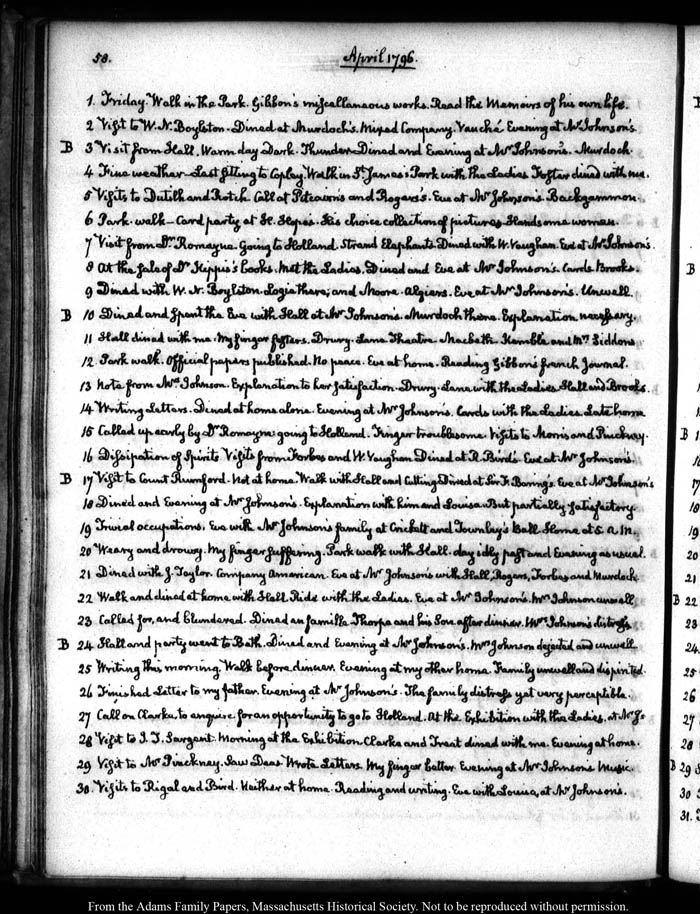 58.
April 1796.
1. Friday. Walk in the Park. Gibbon's miscellaneous works. Read the Memoirs of his own life.
2 Visit to W. N. Boylston. Dined at Murdoch's. Mixed Company. Vauché Evening at Mr. Johnson's.
B 3 Visit from Hall. Warm day Dark. Thunder. Dined and Evening at Mr. Johnson's. Murdoch.
4 Fine weather. Last sitting to Copley. Walk in St. James's Park with the Ladies Foster dined with me.
5 Visits to Dutilh and Rotch. Call at Pitcairn's and Rogers's. Eve at Mr. Johnson's. Backgammon.
6 Park. walk. Card party at H. Hope's. His choice collection of pictures. Handsome woman.
7 Visit from Dr. Romayne. Going to Holland. Strand Elephants. Dined with W. Vaughan. Eve at Mr. Johnson's.
8 At the sale of Dr. Kippis's books. Met the Ladies. Dined and Eve at Mr. Johnson's. Cards Brooks.
9 Dined with W. N. Boylston. Logie there; and Moore. Algiers. Eve at Mr. Johnson's. Unwell.
B 10 Dined and spent the Eve with Hall at Mr. Johnson's. Murdoch there. Explanation necessary.
11 Hall dined with me. My finger festers. Drury. Lane Theatre. Macbeth. Kemble and Mrs. Siddons
12. Park walk. Official papers published. No peace. Eve at home. Reading Gibbon's french Journal.
13 Note from Mrs. Johnson. Explanation to her satisfaction. Drury. Lane with the Ladies Hall and Brooks.
14 Writing Letters. Dined at home alone. Evening at Mr. Johnson's. Cards with the Ladies. Late home
15 Called up early by Dr. Romayne going to Holland. Finger troublesome. Visits to Morris and Pinckney.
16 Dissipation of Spirits Visits from Forbes and W. Vaughan. Dined at R. Bird's. Eve at Mr. Johnson's.
B 17 Visit to Count Rumford. Not at home. Walk with Hall and Cutting. Dined at Sir F. Baring's. Eve at Mr. Johnson's
18 Dined and Evening at Mr. Johnson's. Explanation with him and Louisa. But partially satisfactory.
19 Trivial occupations. Eve with Mr. Johnson's family at Crickitt and Townley's Ball. Home at 5 A. M.
20 Weary and drowsy. My finger suffering. Park walk with Hall. day idly past and Evening as usual.
21 Dined with J. Taylor. Company American. Eve at Mr. Johnson's with Hall, Rogers, Forbes and Murdoch
22 Walk and dined at home with Hall. Ride with the Ladies. Eve at Mr. Johnson's. Mrs. Johnson unwell
23 Called for, and blundered. Dined en famille Thorpe and his Son after dinner. Mrs. Johnson's distress.
B 24 Hall and party went to Bath. Dined and Evening at Mr. Johnson's. Mrs Johnson dejected and unwell
25 Writing this morning. Walk before dinner. Evening at my other home. Family unwell and dispirited.
26 Finished Letter to my father. Evening at Mr. Johnson's. The family distress yet very perceptible.
27 Call on Clarke, to enquire for an opportunity to go to Holland. At the Exhibition with the Ladies. at Mr. J's
28 Visit to I. T. Sargent. Morning at the Exhibition Clarke and Treat dined with me. Evening at home.
29 Visit to Mr. Pinckney. Saw Deas Wrote Letters. My finger better. Evening at Mr. Johnson's Music.
30. Visits to Rigal and Bird. Neither at home. Reading and writing. Eve with Louisa, at Mr. Johnson's.
From the Adams Family Papers, Massachusetts Historical Society. Not to be reproduced without permission.